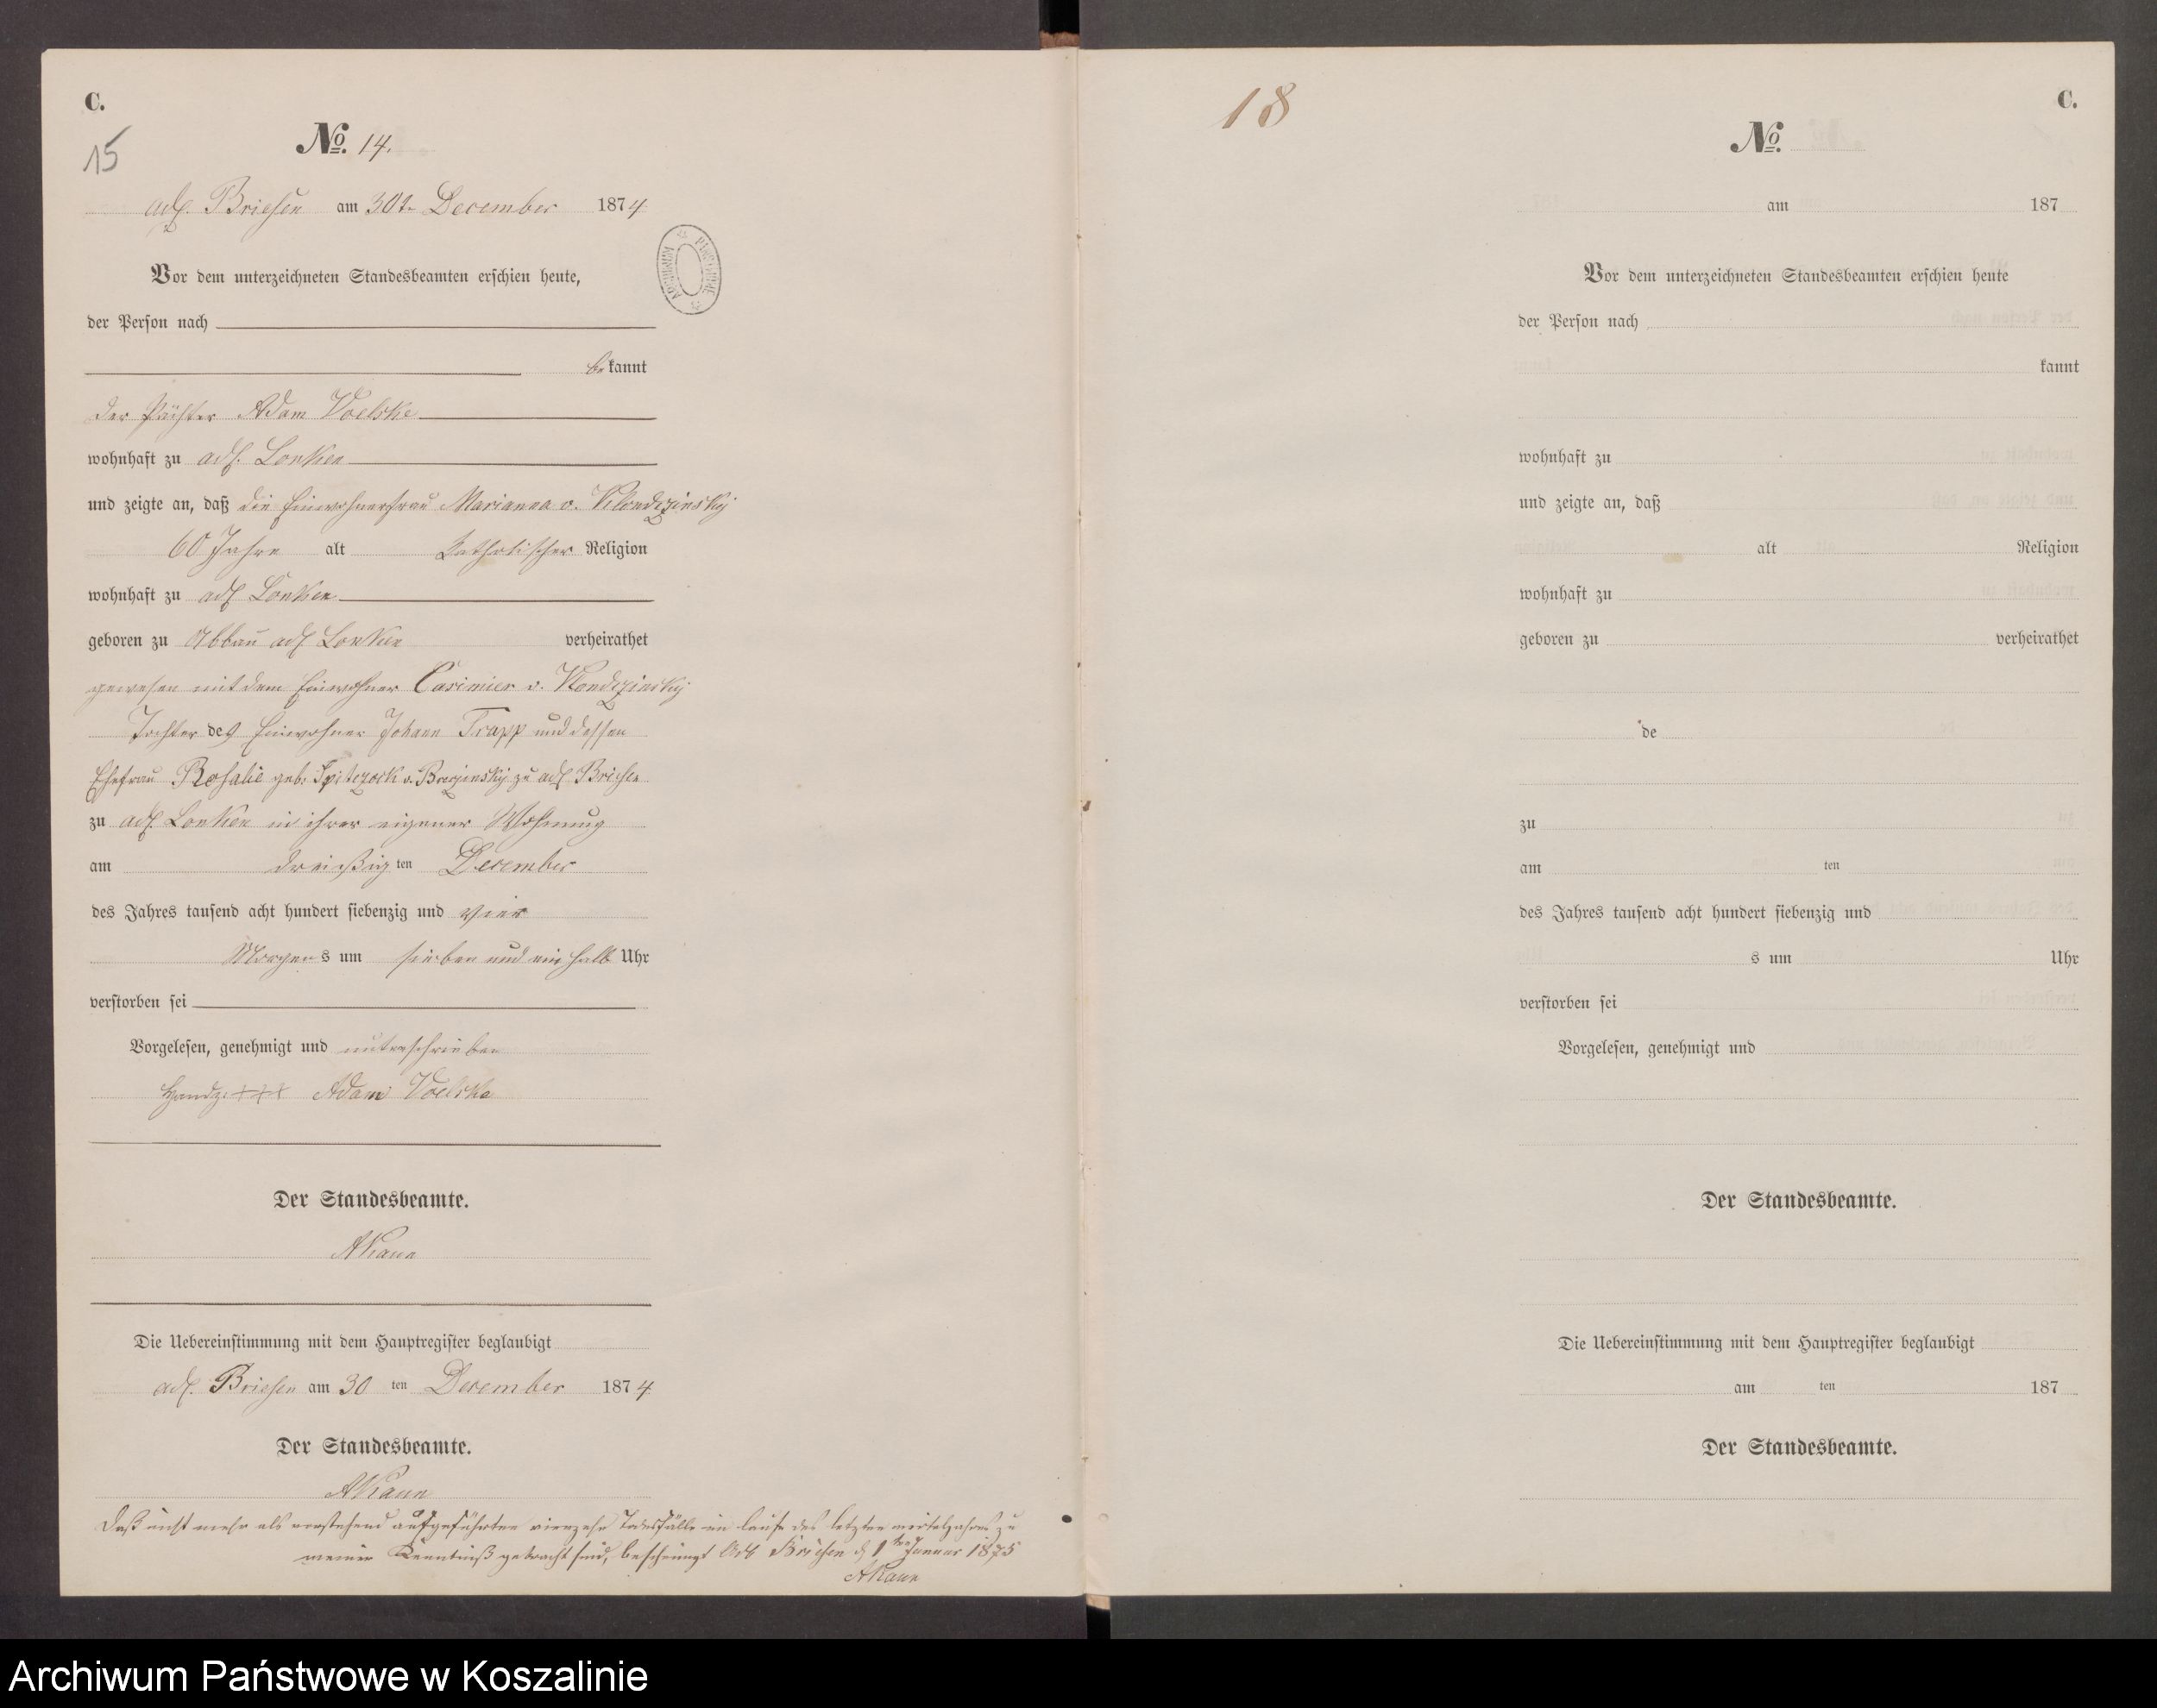 C.
15
No. 14.
adl. Briesen am 30t. December 1874
Vor dem unterzeichneten Standesbeamten erschien heute,
der Person nach
bekannt
der Pächter Adam Voelske
wohnhaft zu adl. Lonken
und zeigte an, daß die Einwohnerfrau Marianna v. Klondzinsky
60 Jahre alt katholischer Religion
wohnhaft zu adl Lonken
geboren zu Abbau adl Lonken verheirathet
gewesen mit dem Einwohner Casimier v. Klondzinsky
Tochter des Einwohner Johann Trapp und dessen
Ehefrau Rosalie geb. v. zu adl Briesen
zu adl. Lonken in ihrer eigener Wohnung
am dreißigten December
des Jahres tausend acht hundert siebenzig und vier
Morgens um sieben und ein halb Uhr
verstorben sei
Vorgelesen, genehmigt und unterschrieben
Handz. +++ Adam Voelske
Der Standesbeamte.
Die Uebereinstimmung mit dem Hauptregister beglaubigt
adl. Briesen am 30 ten December 1874
Der Standesbeamte.
Daß nicht mehr als vorstehend aufgeführten vierzehn Todesfälle im Laufe des letzten zu
meiner Kenntniß gebracht sind, bescheinigt Adl Briesen d 1ten Januar 1875
ARCHIWUM PAŃSTWOWE
18
C.
No.
am 187
Vor dem unterzeichneten Standesbeamten erschien heute
der Person nach
kannt
wohnhaft zu
und zeigte an, daß
alt Religion
wohnhaft zu
geboren zu verheirathet
de
zu
am ten
des Jahres tausend acht hundert siebenzig und
s um Uhr
verstorben sei
Vorgelesen, genehmigt und
Der Standesbeamte.
Die Uebereinstimmung mit dem Hauptregister beglaubigt
am ten 187
Der Standesbeamte.
Archiwum Państwowe w Koszalinie